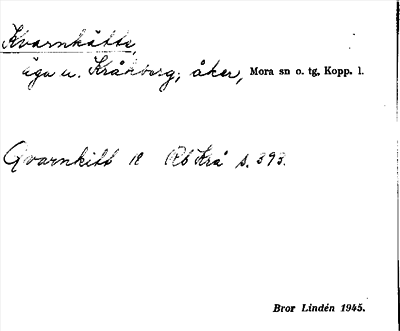 Kvarnkätte,
äga u. Kråkberg; åker, Mora sn o. tg, Kopp. l.
Qvarnkitt R Rb Krå s. 393.
Bror Lindén 1945.